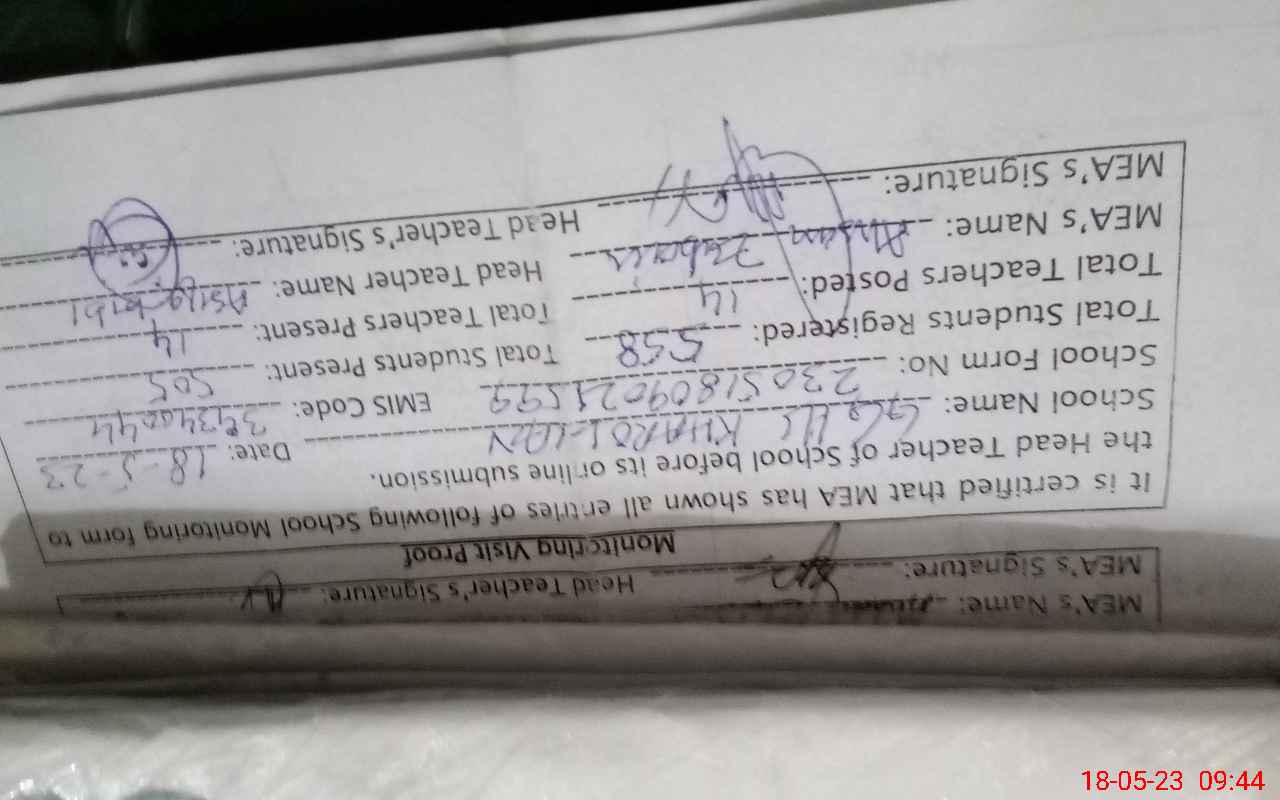 MEA's Name:
MEA's Signature: Head Teacher's Signature:
Monitoring Visit Proof
It is certified that MEA has shown all entries of following School Monitoring form to
the Head Teacher of School before its online submission.
Date: 18-5-23
School Name: KHAROLIAN
School Form No: 23051809021599 EMIS Code:
Total Students Registered: 558 Total Students Present: 505
Total Teachers Posted: 14 Total Teachers Present: 14
MEA's Name: Ahsan Zubair Head Teacher Name: bibi
MEA's Signature: Head Teacher's Signature:
18-05-23 09:44